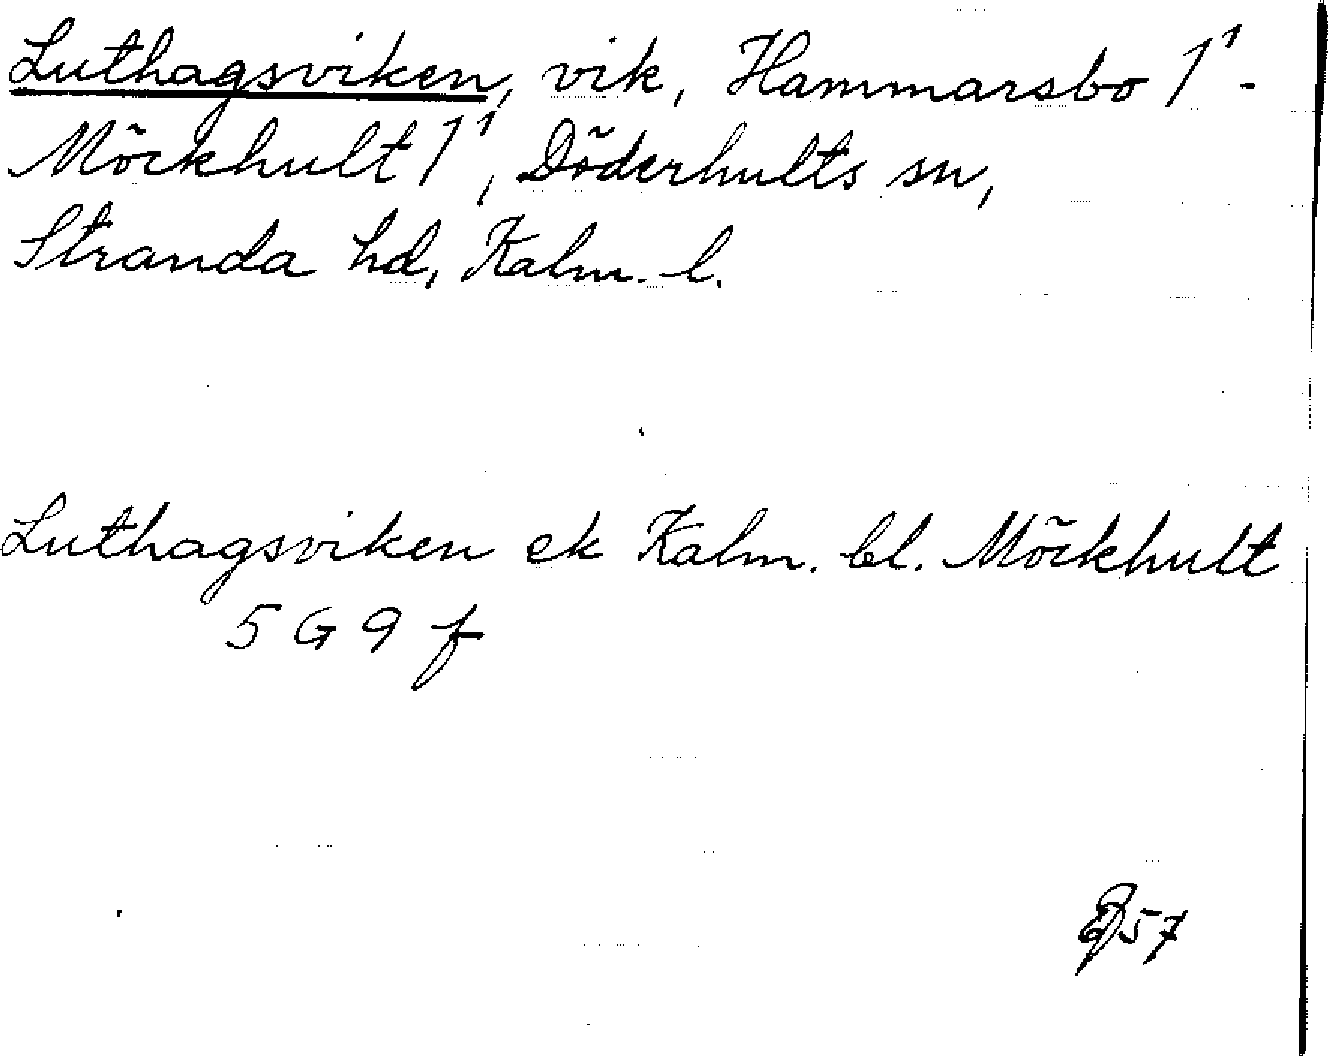 Luthagsviken, vik, Hammarsbo 1¹-
Möckhult 1¹, Döderhults sn,
Stranda hd, Kalm. l.
Luthagsviken ek Kalm. bl. Möckhult
5 G 9 f
57